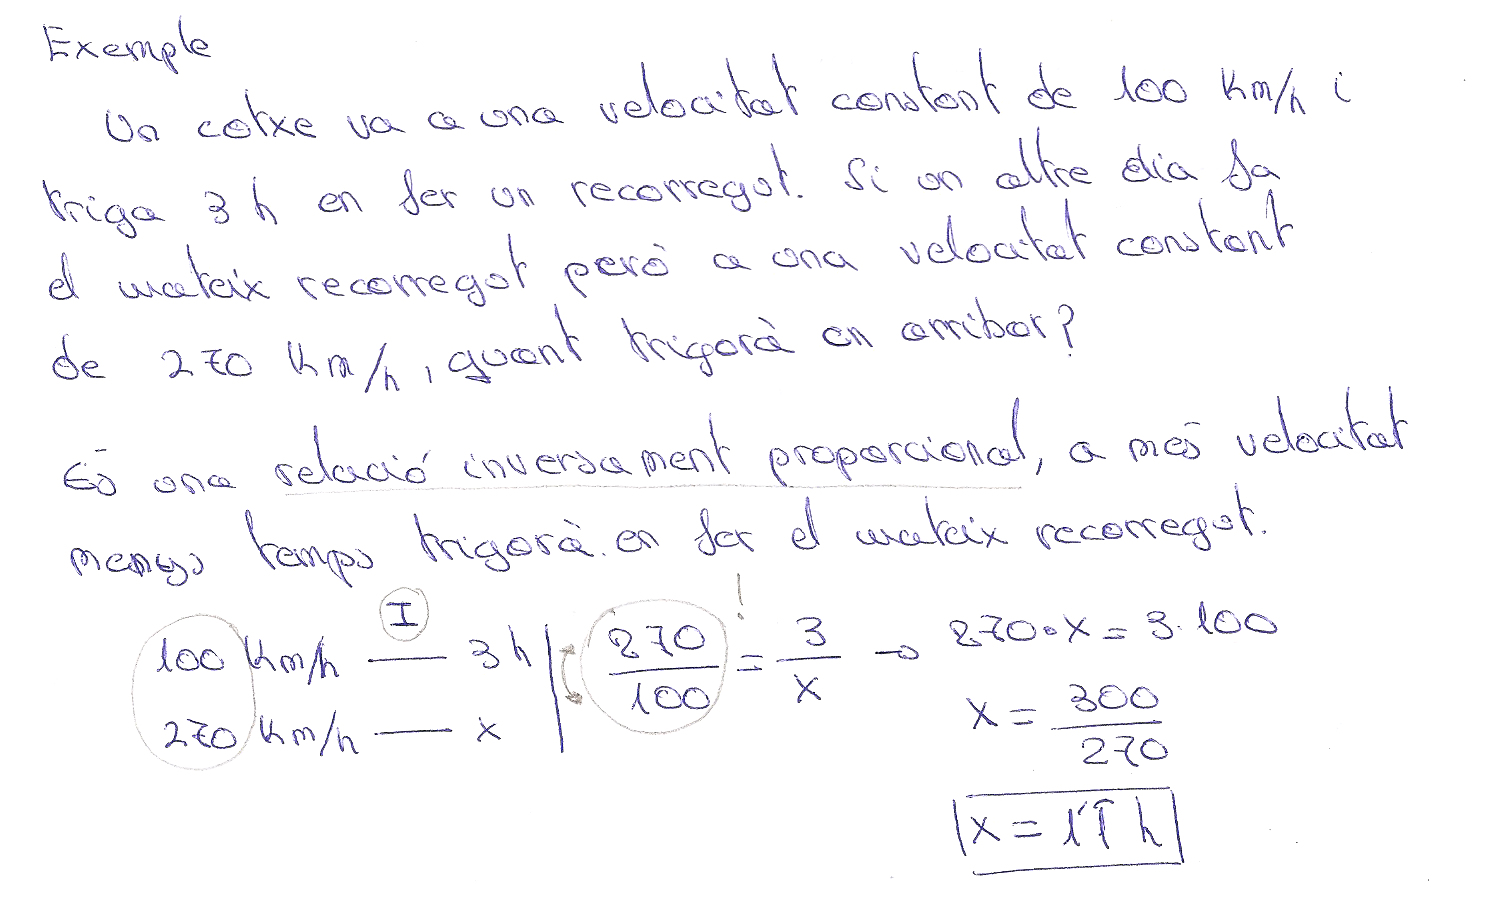 Exemple
Un cotxe va a una velocitat constant de 100 Km/h i
triga 3 h en fer un recorregut. Si un altre dia fa
el mateix recorregut però a una velocitat constant
de 270 Km/h, quant trigarà en arribar?
És una relació inversament proporcional, a més velocitat
menys temps trigarà en fer el mateix recorregut.
I
100 Km/h — 3 h | 270/100 =! 3/x → 270·x = 3·100
270 Km/h — x
x = 300/270
x = 1'1̂ h